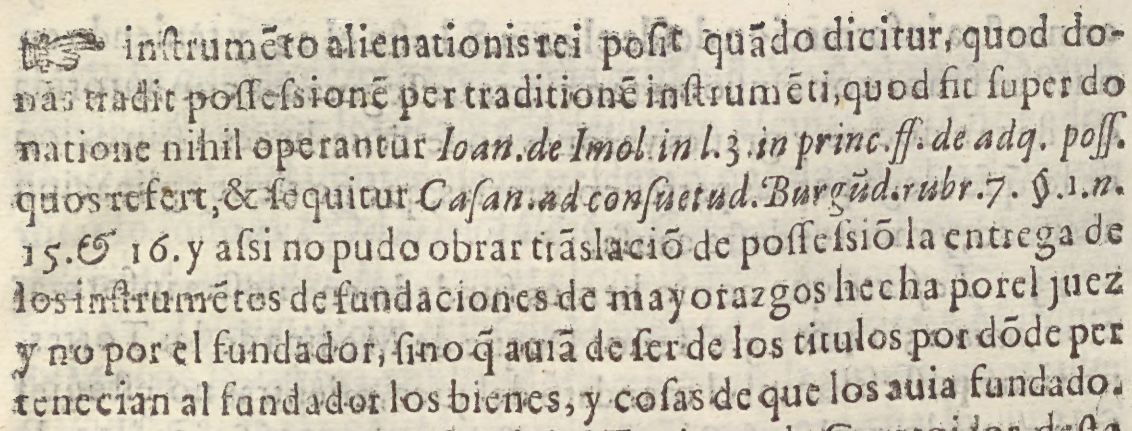 ☞ inſtrumẽto alienationis rei poſit quãdo dicitur, quod do-
nãs tradit poſſeſsionẽ per traditionẽ inſtrumẽti, quod fit ſuper do
natione nihil operantur Ioan. de Imol. in l. 3. in princ. ff. de adq. poſſ.
quos refert, & ſequitur Caſan. ad conſuetud. Burgũd. rubr. 7. §. 1. n.
15. & 16. y aſsi no pudo obrar trãslaciõ de poſſeſsiõ la entrega de
los inſtrumẽtos de fundaciones de mayorazgos hecha por el juez
y no por el fundador, ſino q̃ auiã de ſer de los titulos por dõde per
tenecian al fundador los bienes, y coſas de que los auia fundado.